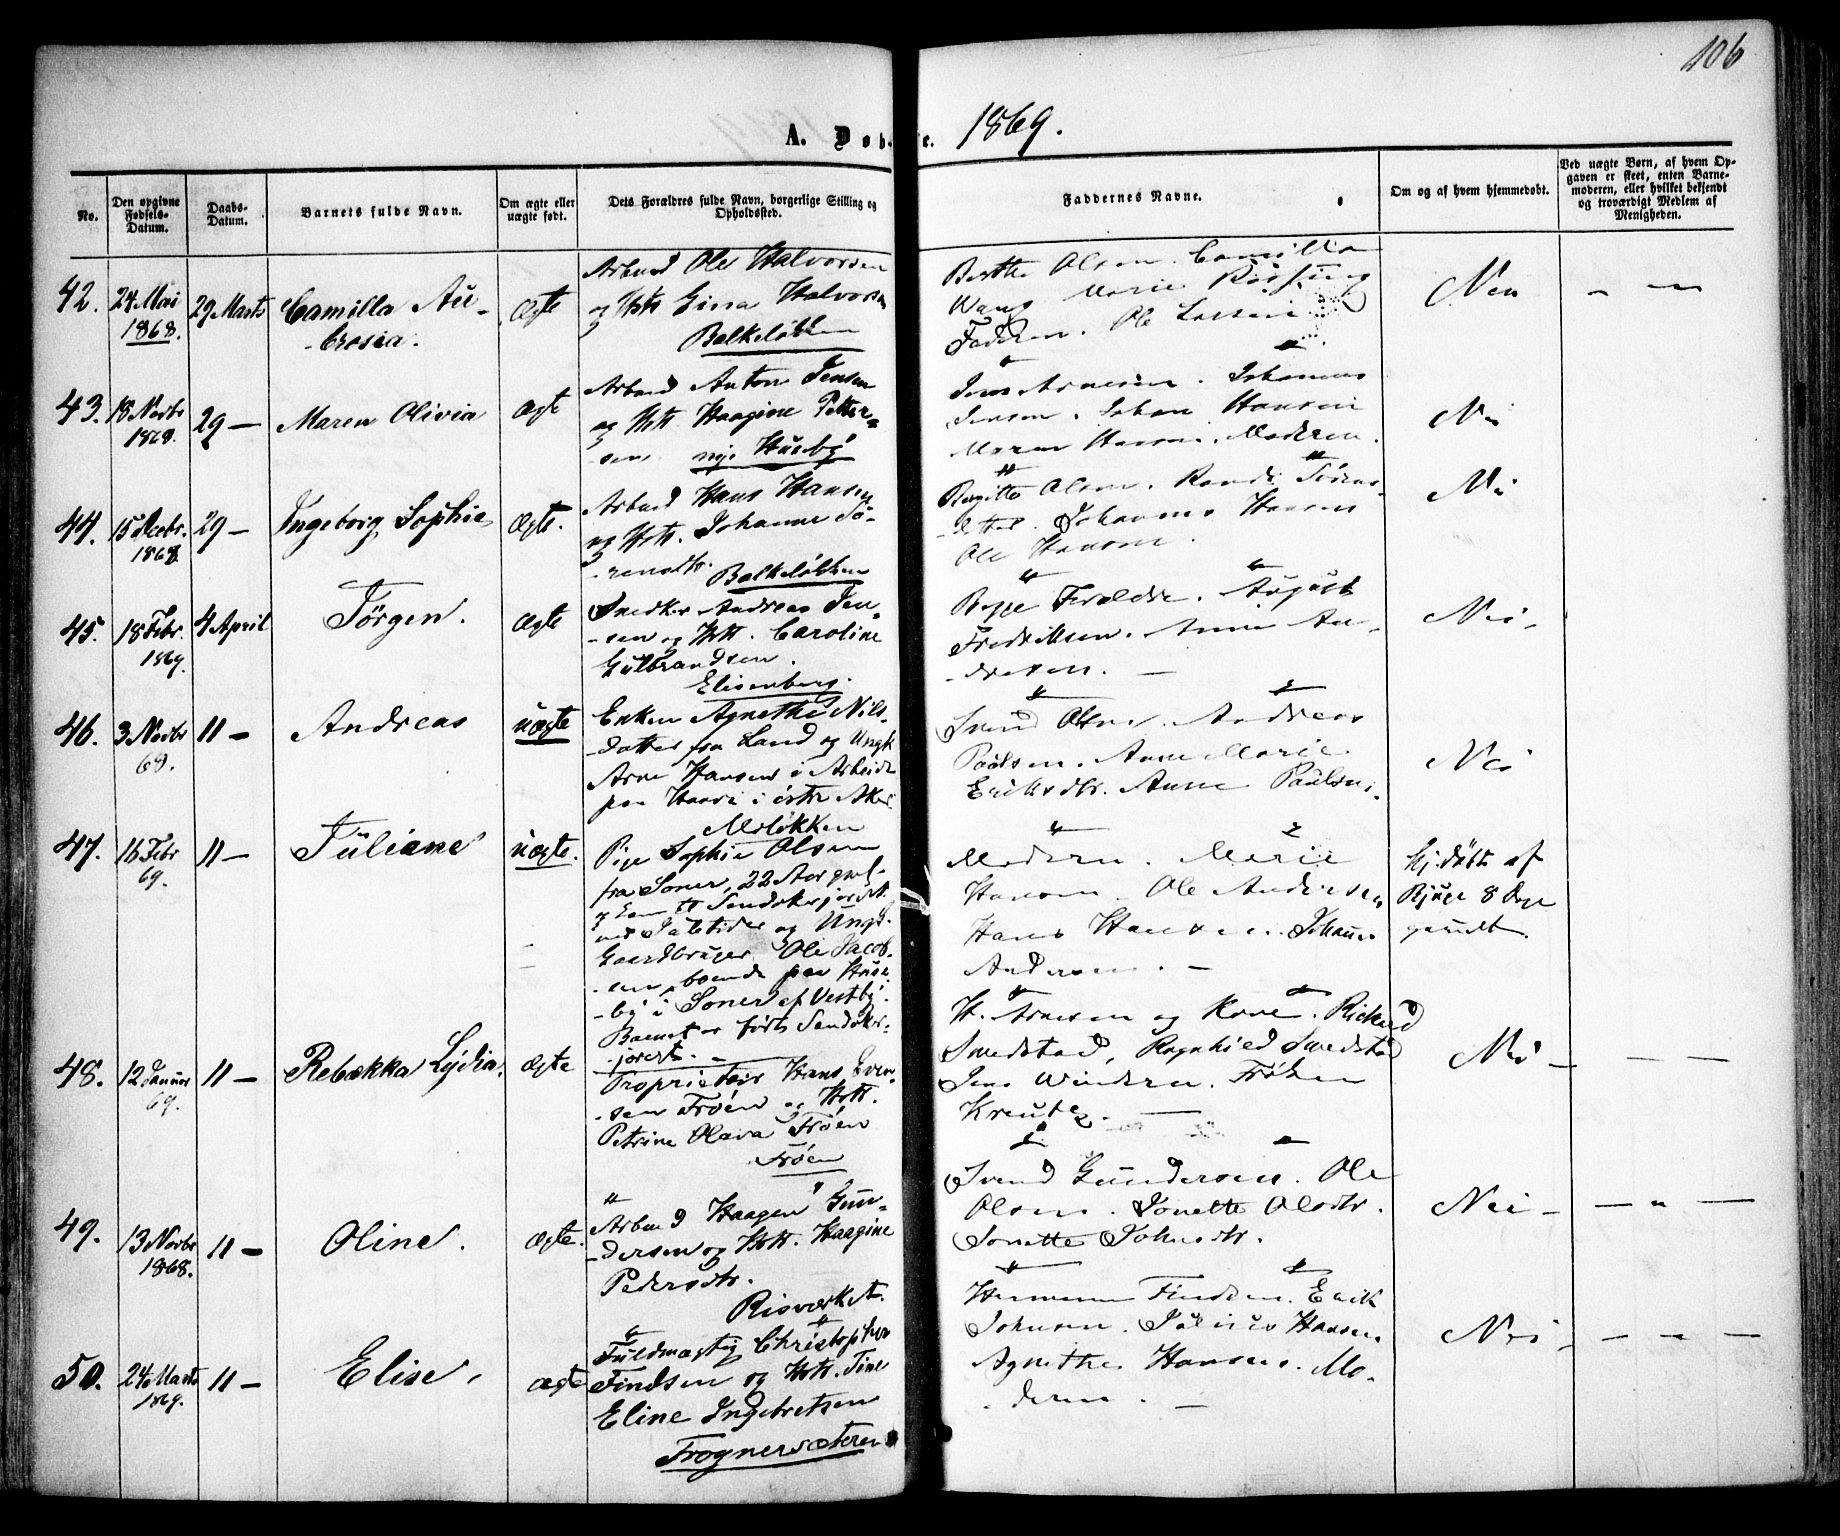 106
A. Døb e. 1869.
No.
Den opgivne Fødsels-Datum.
Daabs-Datum.
Barnets fulde Navn.
Om ægte eller uægte født.
Dets Forældres fulde Navn, borgerlige Stilling og Opholdssted.
Faddernes Navne.
Om og af hvem hjemmedøbt.
Ved uægte Børn, af hvem Opgaven er skeet, enten Barnemoderen, eller hvilket bekjendt og troværdigt Medlem af Menigheden.
42.
24 Mai
1868.
29 Marts
Camilla Au-
Ægte
Arbmd Ole Halvorsen
og Hst Gina Halvorsen
Balkeløkken
Berthe Olsen. Camilla
Wang Marie
Faderen. Ole Larsen
Nei
43.
18 Novbr
29 —
Maren Olivia
Ægte
Arbmd Anton Jensen
og Hst Haagine Petter-
sen
nye Huseby
Jens Arnesen. Johannes
Jensen. Johan Hansen
Maren Hansen. Moderen.
Nei
44.
15 Decbr.
1868
29 —
Ingeborg Sophie
Ægte.
Arbmd Hans Hansen
og Hst. Johanne Sø-
rensdtr.
Balkeløkken
Birgitte Olsen. Randi Sørens-
datter. Johannes Hansen
Ole Hansen.
Nei
45.
18 Febr.
1869.
4 April
Jörgen.
Ægte
Snedker Andreas Jen-
sen og Hst. Caroline
Gulbrandsen.
Elisenberg.
Begge Forældre. August
Fredriksen. Anne An-
dresen. —
Nei.
46.
3 Novbr
11 —
Andreas
uægte
Enken Agnethe Nils-
datter fra Land og Ungk
Arne Hansen i Arbeide
paa i østre Aker.
Svend Olsen. Andreas
Paulsen. Anne Marie
Eriksdtr. Anne Paulsen.
Nei
47.
16 Febr
69.
11 —
Juliane
uægte.
Pige Sophie Olsen
fra Soner, 22 Aar gml.
og Ungk.
Gaardbruger Ole Jacob-
sen, boende paa Huse-
by i Soner af Vestby.
Moderen. Marie
Hansen. Ole Andersen
Hans Hansen. Johannes
Andersen. —
Hj. døbt af
8 Dage
gammelt.
48.
12 Januar
69.
11 —
Rebækka Lydia.
Ægte
Proprietair Hans Even-
sen Frøen og Hst.
Petrine Olava Frøen
Frøen
H. Arnesen og Kone. Rickard
Smedstad, Ragnhild Smedstad
Jens Windern. Frøken
Kreutz. —
Nei —
49.
13 Novbr
1868.
11 —
Oline.
Ægte.
Arbmd Haagen Gun-
dersen og Hst. Haagine
Pedersdtr.
Risværket.
Svend Gundersen. Ole
Olsen. Jonette Olsdtr.
Jonette Johnsdtr.
Nei —
50.
24 Marts
1869.
11 —
Elise.
Ægte
Fuldmægtig Christopher
Findsen og Hst. Tine
Eline Ingebretsen
Frognersæteren
Hermann Findsen. Erik
Johnsen. Julius Hansen
Agnethe Hansen. Mo-
deren. —
Nei. —